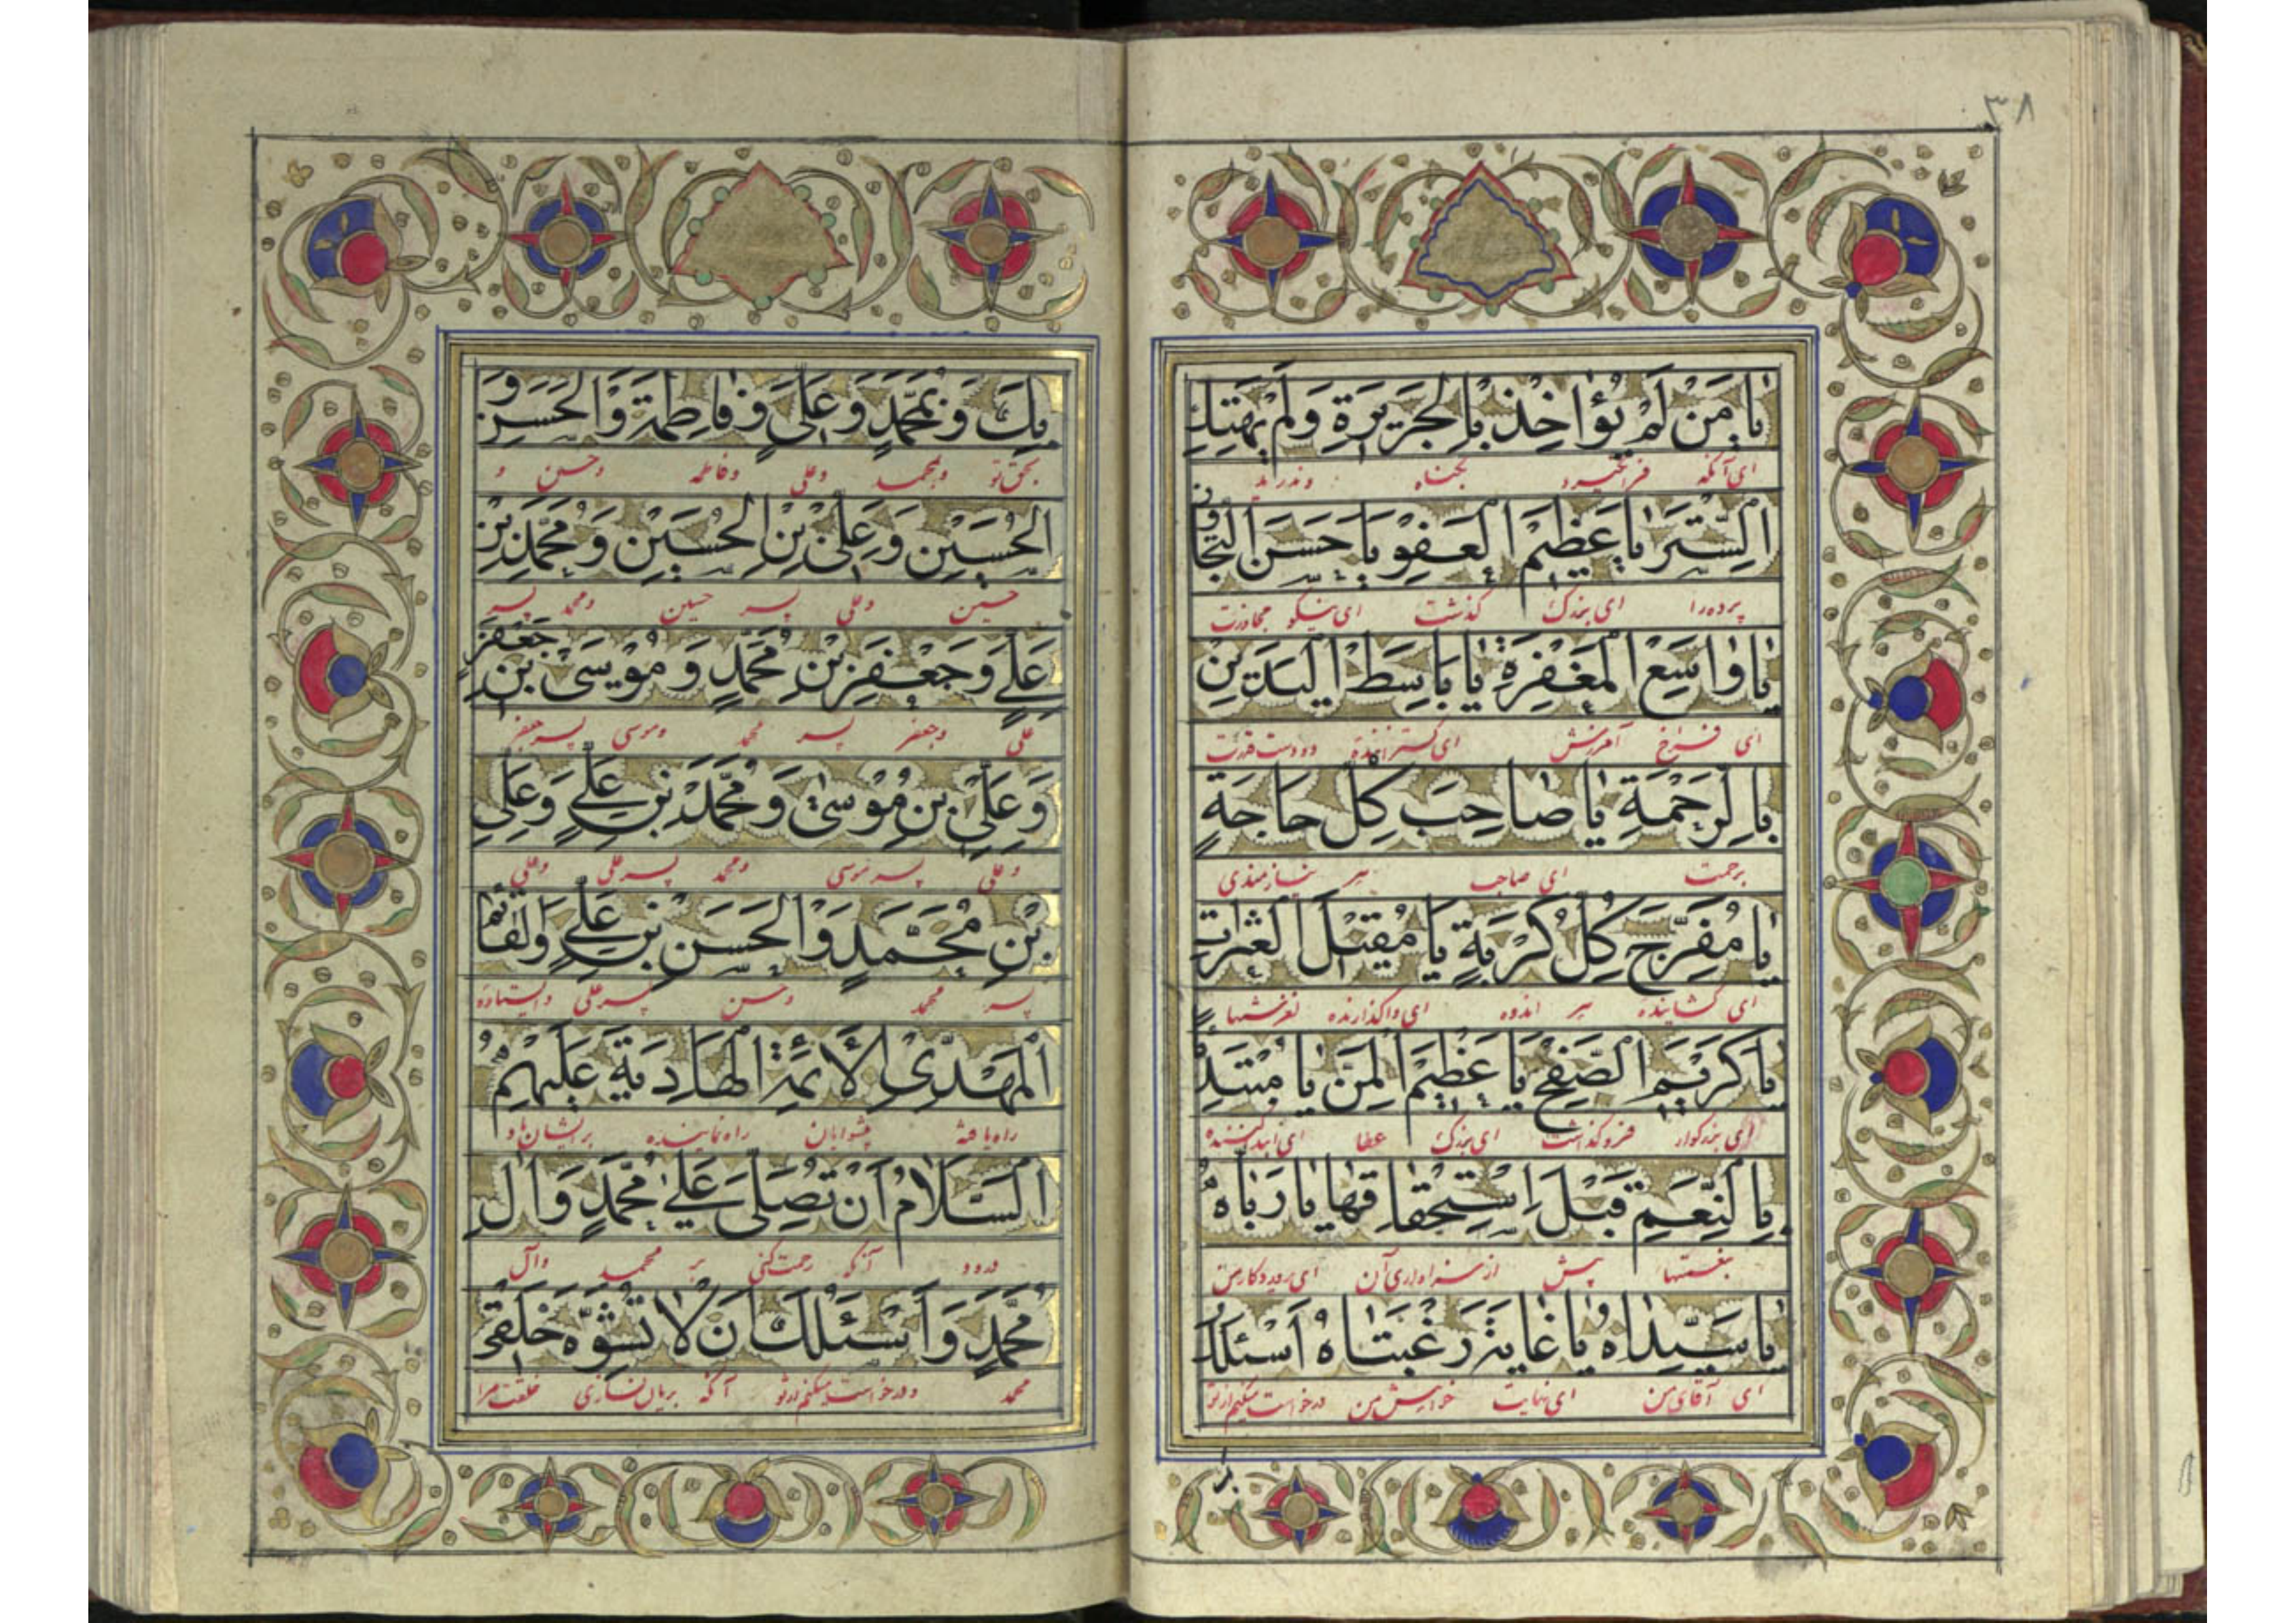 ٣٨
يا مَنْ لَمْ يُؤاخِذْ بِالْجَريرَةِ وَلَمْ يَهْتِكِ
ای آنکه فرانگیرد بگناه و ندراند
السِّتْرَ يا عَظيمَ الْعَفْوِ يا حَسَنَ التَّجاوُزِ
پرده را ای بزرک گذشت ای نیکو مجاوزت
يا واسِعَ الْمَغْفِرَةِ يا باسِطَ الْيَدَيْنِ
ای فراخ آمرزش ای گسترانندهٔ دو دست قدرت
بِالرَّحْمَةِ يا صاحِبَ كُلِّ حاجَةٍ
برحمت ای صاحب هر نیازمندی
يا مُفَرِّجَ كُلِّ كُرْبَةٍ يا مُقيلَ الْعَثَراتِ
ای گشاینده هر اندوه ای واگذارنده لغزشها
يا كَريمَ الصَّفْحِ يا عَظيمَ الْمَنِّ يا مُبْتَدِئً
ای بزرگوار فروگذاشت ای بزرک عطا ای ابتداکننده
بِالنِّعَمِ قَبْلَ اسْتِحْقاقِها يا رَبّاهُ
بنعمتها پیش از سزاواری آن ای پروردکار من
يا سَيِّداهُ يا غايَةَ رَغْبَتاهُ اَسْئَلُكَ
ای آقای من ای نهایت خواهش من درخواست میکنم از تو
بِكَ وَ بِمُحَمَّدٍ وَ عَلِيٍّ وَ فاطِمَةَ وَالْحَسَنِ وَ
بحق تو و بمحمد و علی و فاطمه و حسن و
الْحُسَيْنِ وَ عَلِيِّ بْنِ الْحُسَيْنِ وَ مُحَمَّدِ بْنِ
حسین و علی پسر حسین و محمد پسر
عَلِيٍّ وَ جَعْفَرِ بْنِ مُحَمَّدٍ وَ مُوسَى بْنِ جَعْفَرٍ
علی و جعفر پسر محمد و موسی پسر جعفر
وَ عَلِيِّ بْنِ مُوسىٰ وَ مُحَمَّدِ بْنِ عَلِيٍّ وَ عَلِيِّ
و علی پسر موسی و محمد پسر علی و علی
بْنِ مُحَمَّدٍ وَالْحَسَنِ بْنِ عَلِيٍّ وَالْقائِمِ
پسر محمد و حسن پسر علی و ایستاده
الْمَهْدِيِّ الْأَئِمَّةِ الْهادِيَةِ عَلَيْهِمُ
راه یافته پیشوایان راه نماینده بر ایشان باد
السَّلامُ اَنْ تُصَلِّيَ عَلىٰ مُحَمَّدٍ وَ الِ
درود آنکه رحمت کنی بر محمد و آل
مُحَمَّدٍ وَ اَسْئَلُكَ اَنْ لا تُشَوِّهَ خَلْقي
محمد و درخواست میکنم از تو آنکه بریان نسازی خلقت مرا